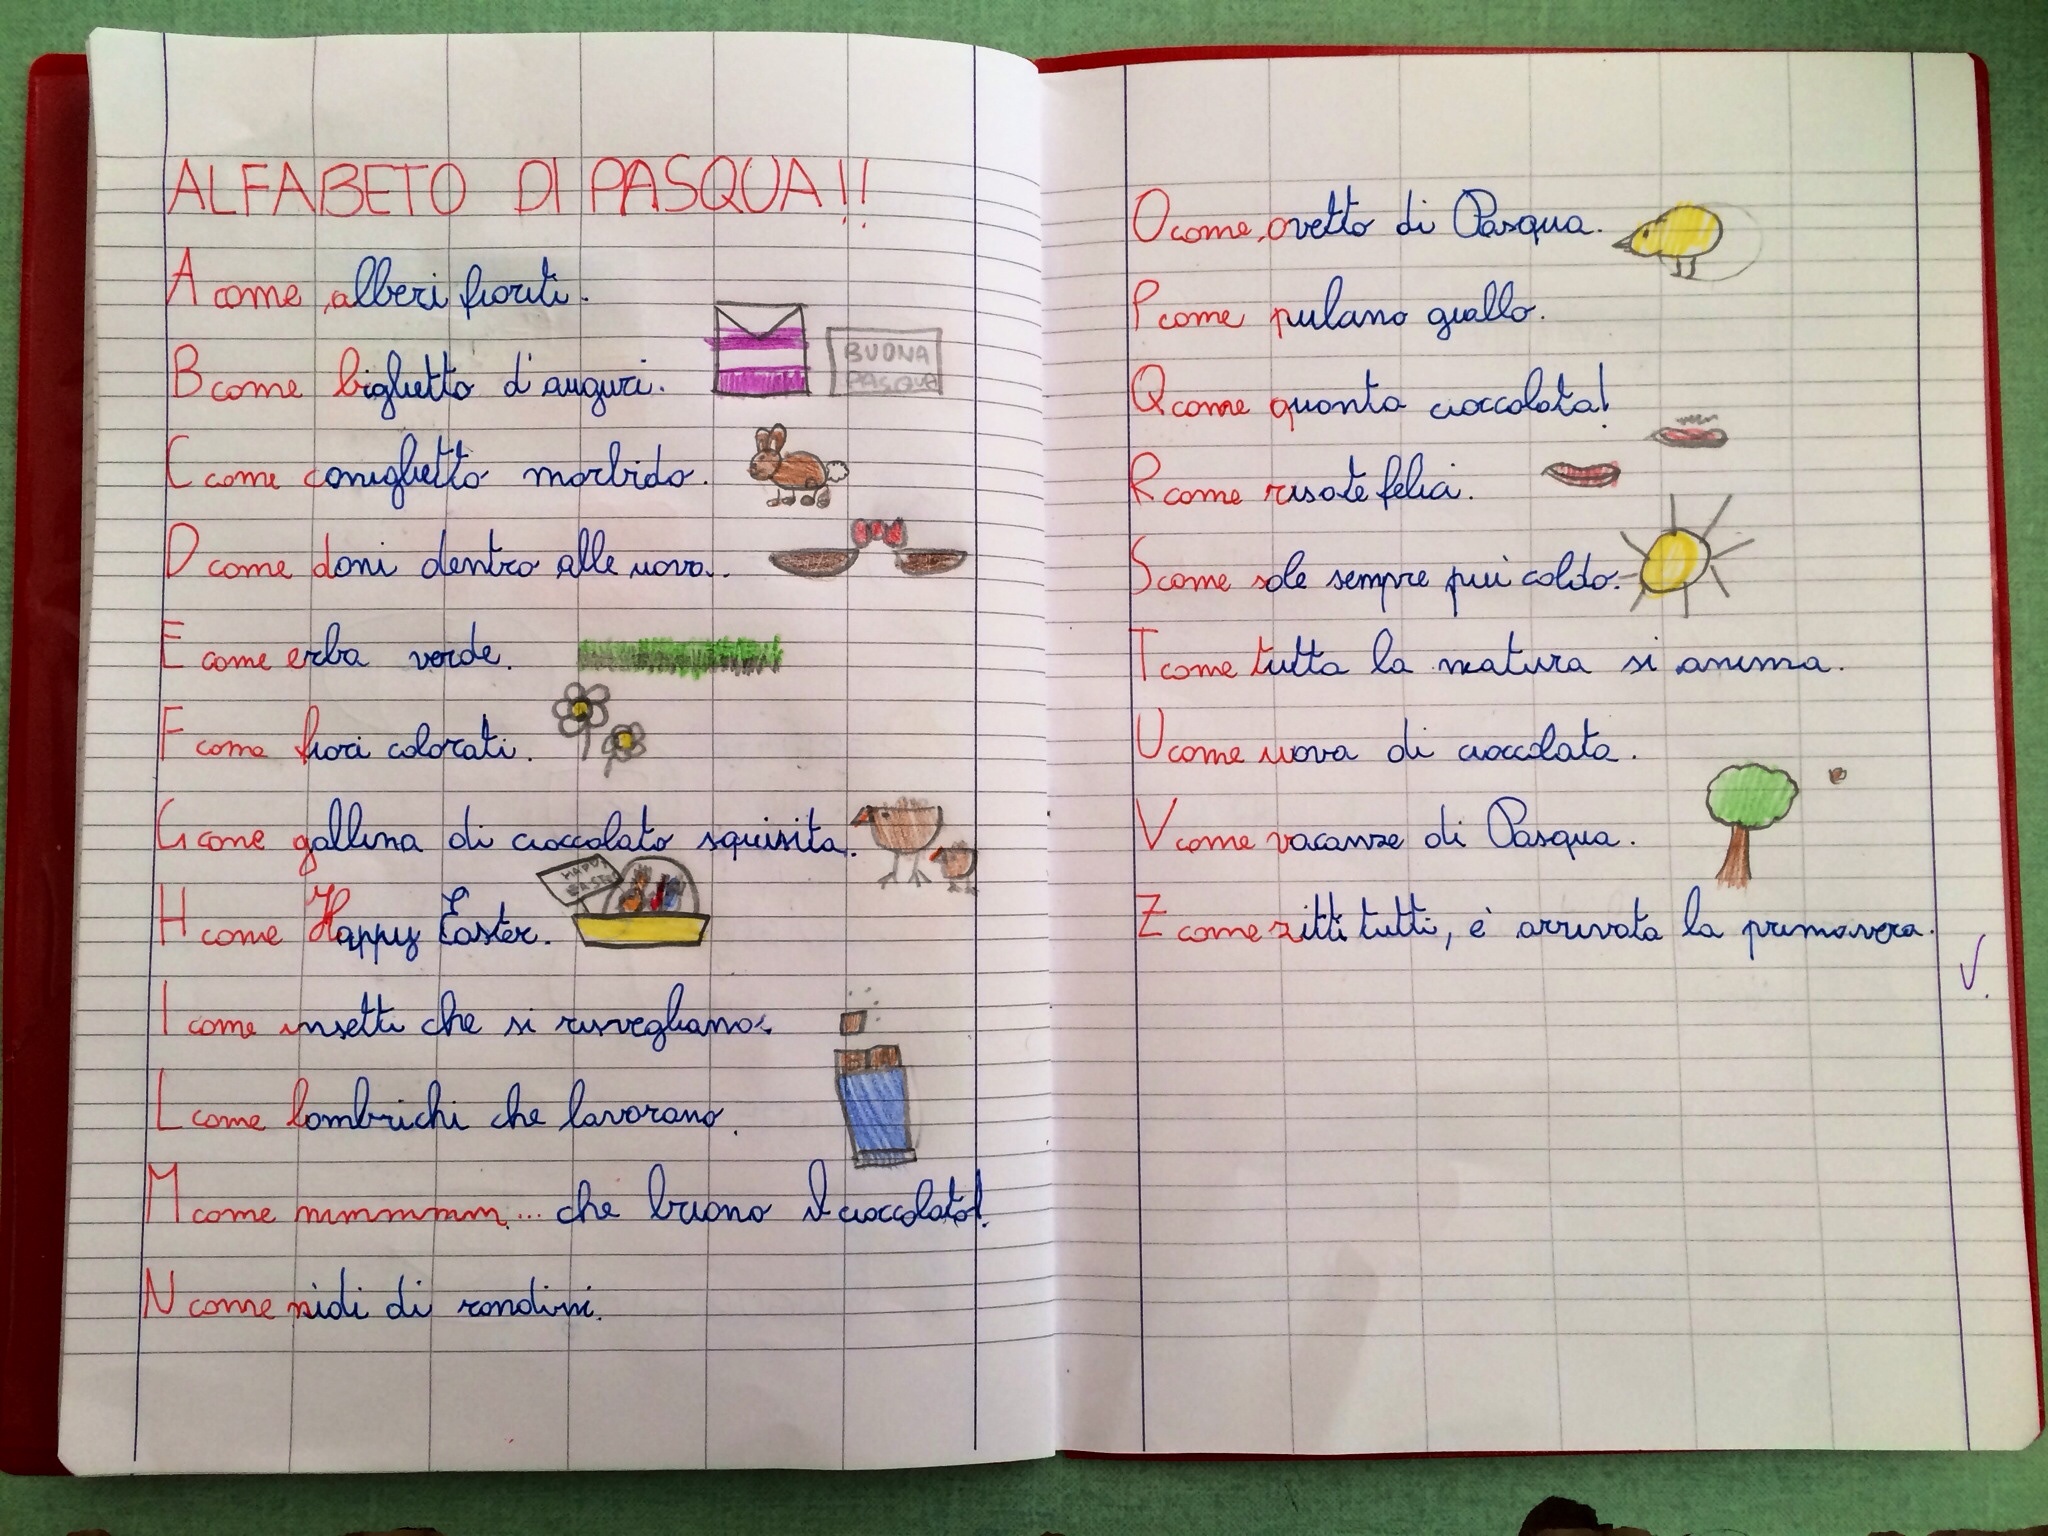 ALFABETO DI PASQUA!!
A come alberi fioriti.
B come biglietto d'auguri.
BUONA
PASQUA
C come coniglietto morbido.
D come doni dentro alle uova.
E come erba verde.
F come fiori colorati.
G come gallina di cioccolato squisita.
HAPPY
EASTER
H come Happy Easter.
I come insetti che si risvegliano.
L come lombrichi che lavorano.
M come mmmmmm... che buono il cioccolato!
N come nidi di rondini.
O come ovetto di Pasqua.
P come pulcino giallo.
Q come quanta cioccolata!
R come risate felici.
S come sole sempre più caldo.
T come tutta la natura si anima.
U come uova di cioccolata.
V come vacanze di Pasqua.
Z come zitti tutti, è arrivata la primavera.